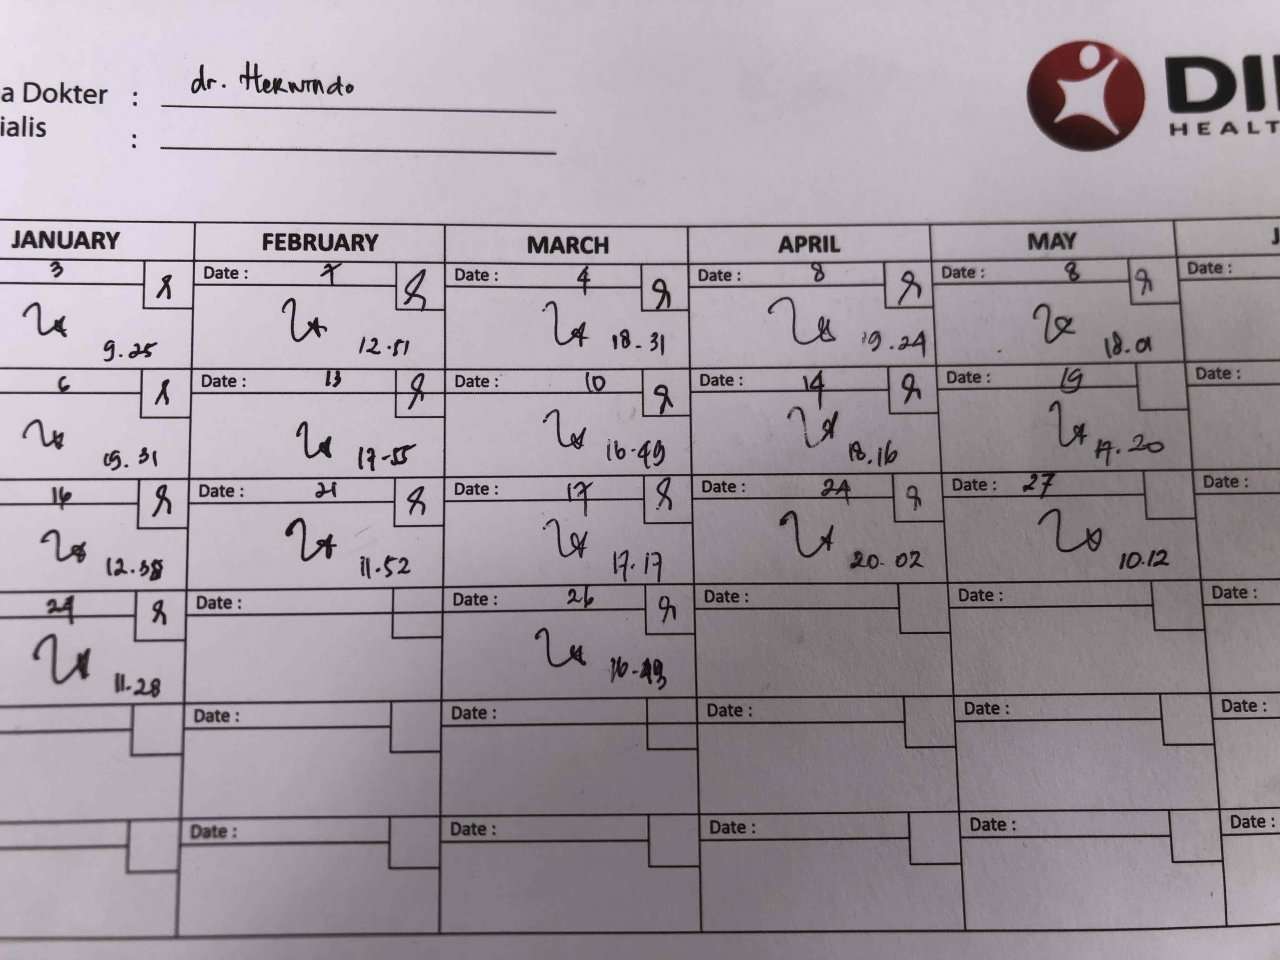 a Dokter : dr. Herwindo
ialis :
DI
HEALT
JANUARY FEBRUARY MARCH APRIL MAY J
3 Date : 7 Date : 4 Date : 8 Date : 8 Date :
9.25 12.51 18-31 19.24 18.01
6 Date : 13 Date : 10 Date : 14 Date : 19 Date :
19.31 17-55 16-49 18.16 17.20
16 Date : 21 Date : 17 Date : 24 Date : 27 Date :
12.38 11.52 17.17 20.02 10.12
24 Date : Date : 26 Date : Date : Date :
11.28 16-43
Date : Date : Date : Date : Date :
Date : Date : Date : Date : Date :